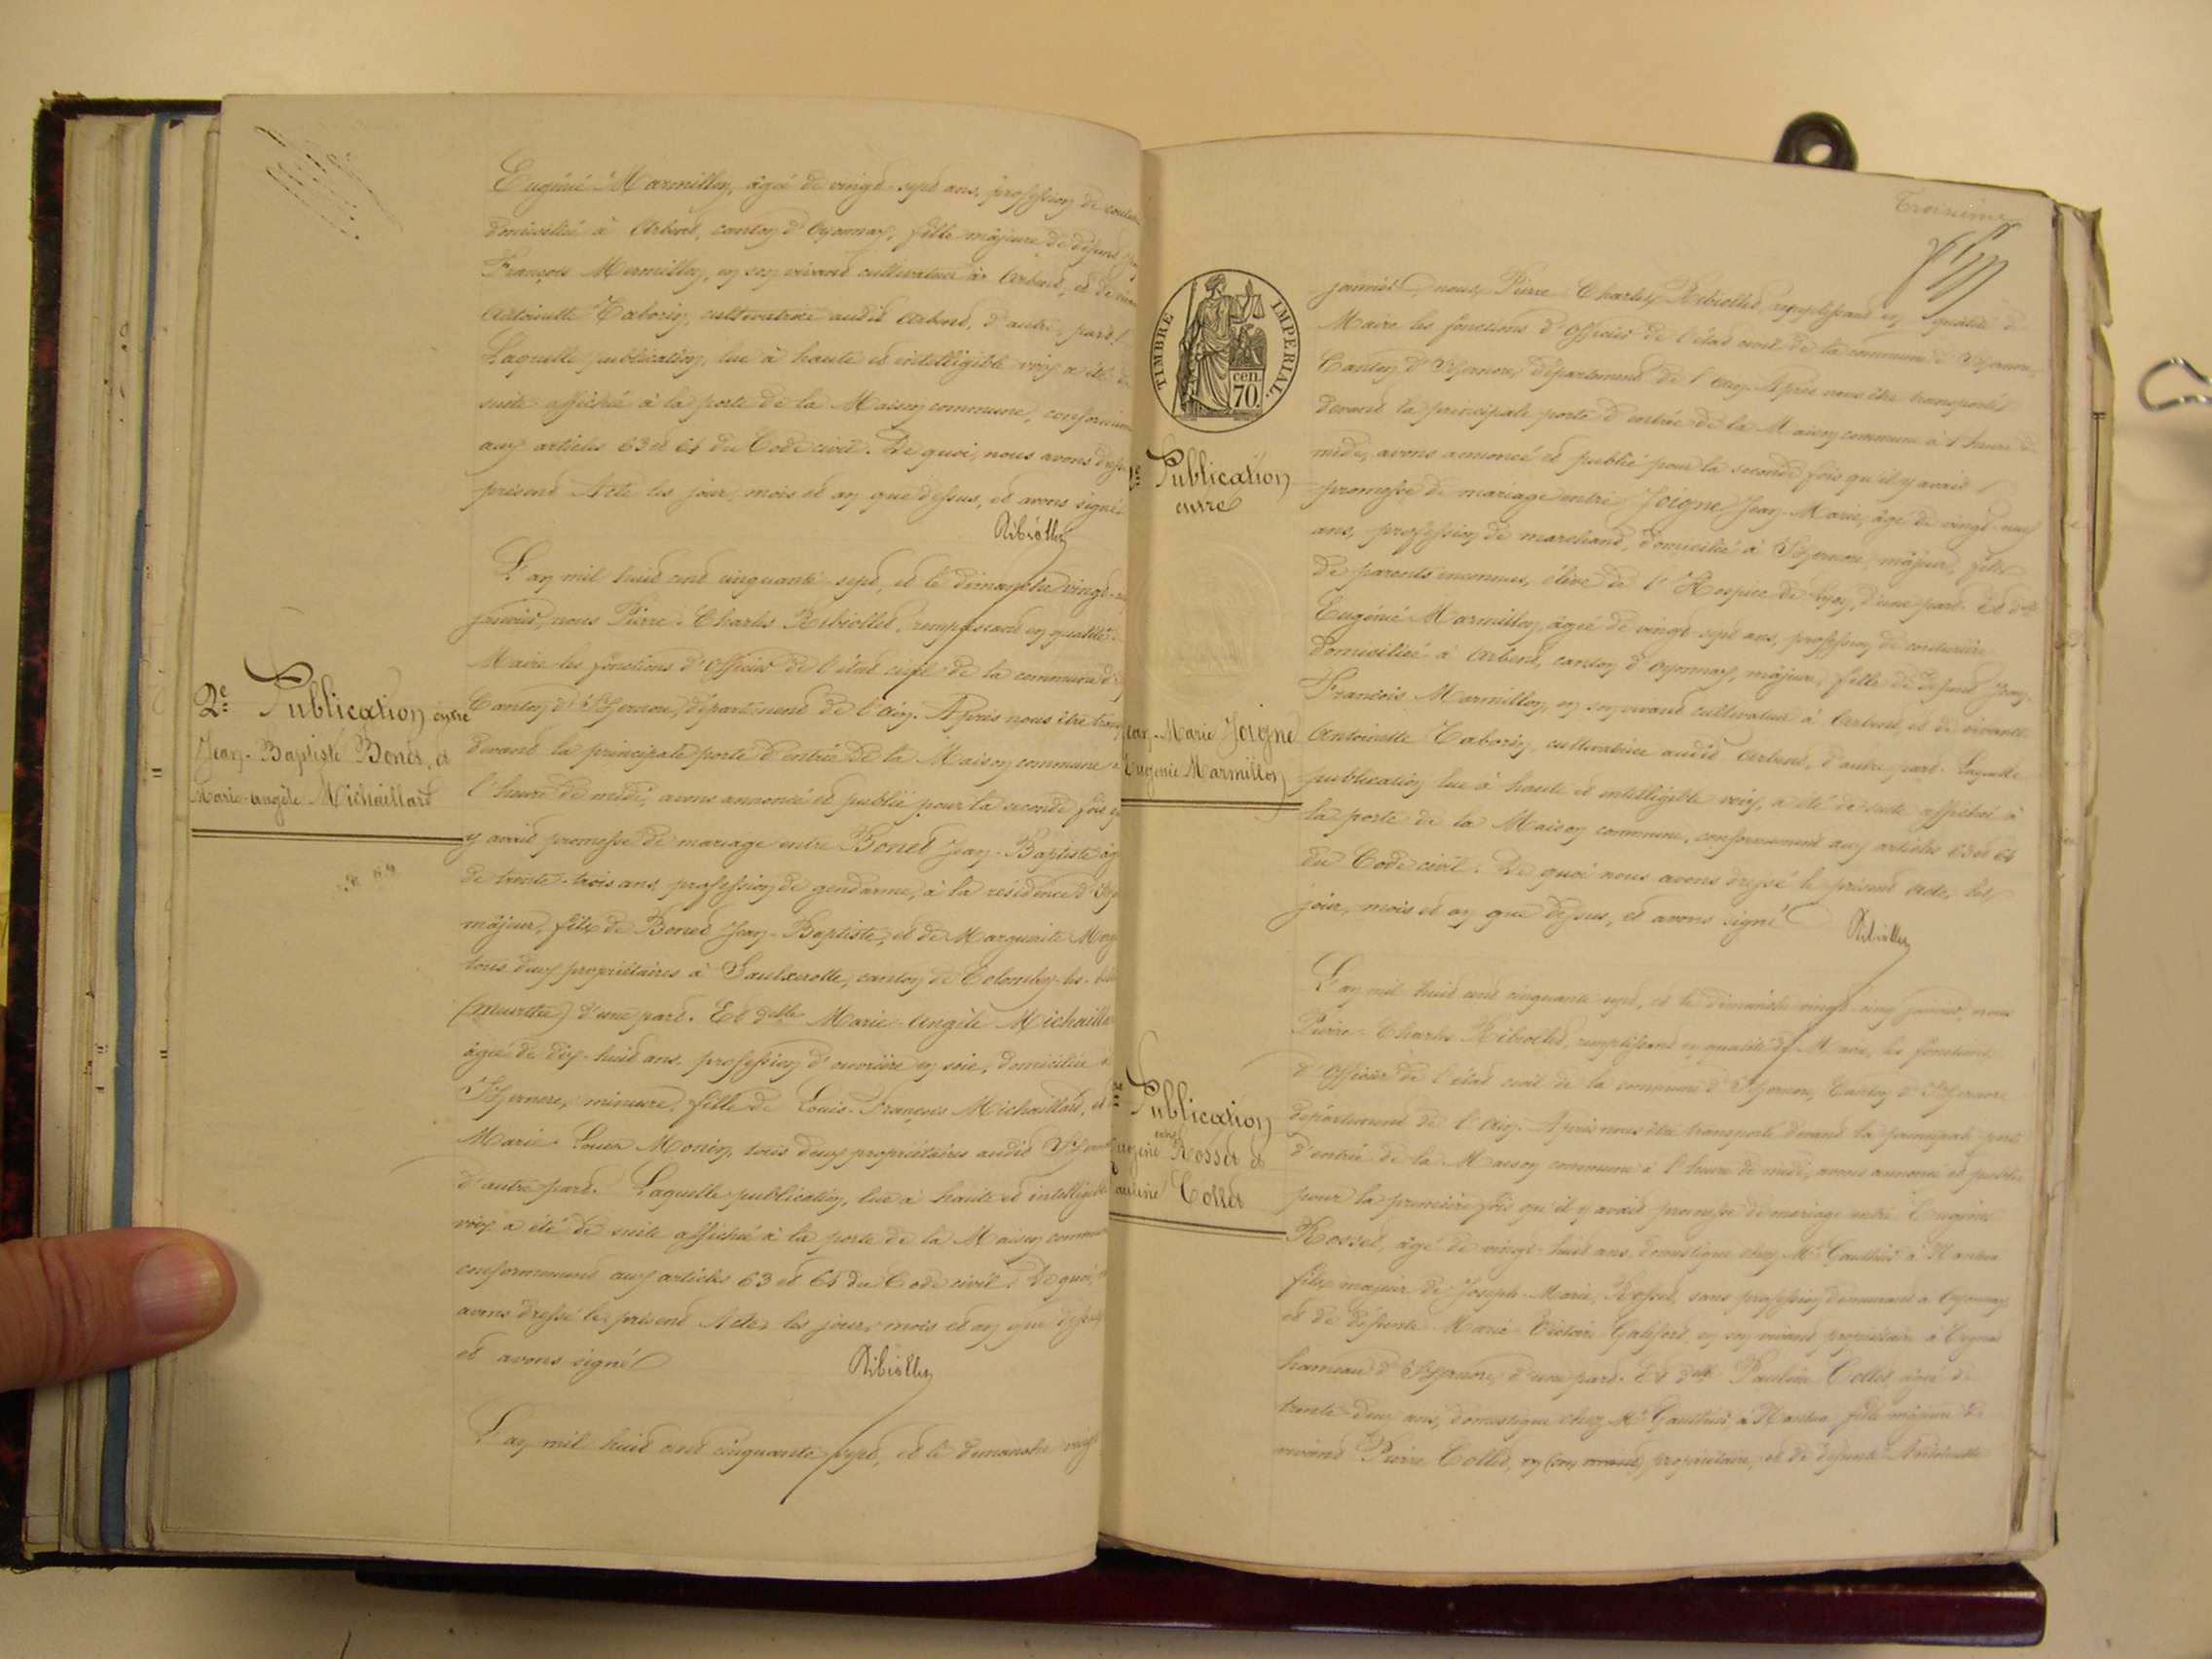 Eugénie Marmillon, âgée de vingt-sept ans, profession de
domiciliée à Arbent, canton d'Oyonnax, fille majeure de défunt
François Marmillon, en son vivant cultivateur à Arbent, et de
Antoinette Taborin, cultivatrice audit Arbent, d'autre part.
Laquelle publication, lue à haute et intelligible voix a été de
suite affichée à la porte de la Maison commune,
aux articles 63 et 64 du Code civil. De quoi, nous avons
présent Acte les jour, mois et an que dessus, et avons signé
Ribiollet
2e Publication entre
Jean-Baptiste Bonet, et
Marie-Angèle Michaillard
L'an mil huit cent cinquante-sept, et le dimanche vingt-
janvier, nous Pierre-Charles Ribiollet, remplissant en qualité
Maire les fonctions d'Officier de l'état civil de la commune d'
Canton d'Izernore, département de l'Ain. Après nous être
devant la principale porte d'entrée de la Maison commune
l'heure de midi, avons annoncé et publié pour la seconde fois
y avait promesse de mariage entre Bonet Jean-Baptiste
de trente-trois ans, profession de gendarme, à la résidence
majeur, fils de Bonet Jean-Baptiste, et de Marguerite
tous deux propriétaires à Saulxerotte, canton de Colombey-les-
(Meurthe) d'une part. Et delle Marie-Angèle
âgée de dix-huit ans, profession d'ouvrière en soie, domiciliée
Izernore, mineure, fille de Louis-François Michaillard, et
Marie-Louise Monin, tous deux propriétaires audit
d'autre part. Laquelle publication, lue à haute et intelligible
voix a été de suite affichée à la porte de la Maison
conformément aux articles 63 et 64 du Code civil. De quoi,
avons dressé le présent Acte, les jour, mois et an que dessus
et avons signé
Ribiollet
L'an mil huit cent cinquante-sept, et le dimanche vingt-
Troisième
TIMBRE IMPERIAL.
cen.
70.
2e Publication
entre
Jean-Marie Joigne
Eugénie Marmillon
janvier, nous Pierre Charles Ribiollet, remplissant en qualité de
Maire les fonctions d'Officier de l'état civil de la commune d'Izernore,
Canton d'Izernore, département de l'Ain. Après nous être transporté
devant la principale porte d'entrée de la Maison commune à l'heure de
midi, avons annoncé et publié pour la seconde fois qu'il y avait
promesse de mariage entre Joigne Jean-Marie, âgé de vingt-neuf
ans, profession de marchand, domicilié à Izernore, majeur, fils
de parents inconnus, élève de l'Hospice de Lyon, d'une part. Et delle
Eugénie Marmillon, âgée de vingt-sept ans, profession de couturière
domiciliée à Arbent, canton d'Oyonnax, majeure, fille de défunt Jean-
François Marmillon, en son vivant cultivateur à Arbent, et de vivante
Antoinette Taborin, cultivatrice audit Arbent, d'autre part. Laquelle
publication lue à haute et intelligible voix, a été de suite affichée à
la porte de la Maison commune, conformément aux articles 63 et 64
du Code civil. De quoi nous avons dressé le présent Acte, les
jour, mois et an que dessus, et avons signé
Ribiollet
Publication
entre
Eugène Rosset et
Pauline Collet
L'an mil huit cent cinquante sept, et le dimanche vingt-cinq janvier, nous
Pierre-Charles Ribiollet, remplissant en qualité de Maire, les fonctions
d'Officier de l'état civil de la commune d'Izernore, Canton d'Izernore
département de l'Ain. Après nous être transporté devant la principale porte
d'entrée de la Maison commune à l'heure de midi, avons annoncé et publié
pour la première fois qu'il y avait promesse de mariage entre Eugène
Rosset, âgé de vingt-huit ans, domestique chez Mr Gauthier à Nantua
fils majeur de Joseph-Marie Rosset, sans profession demeurant à Oyonnax
et de défunte Marie Victoire en son vivant propriétaire à
hameau d'Izernore, d'une part. Et delle Pauline Collet, âgée de
trente-deux ans, domestique chez Mr Gauthier, à Nantua, fille majeure de
vivant Pierre Collet, en (son vivant) propriétaire, et de défunte Antoinette